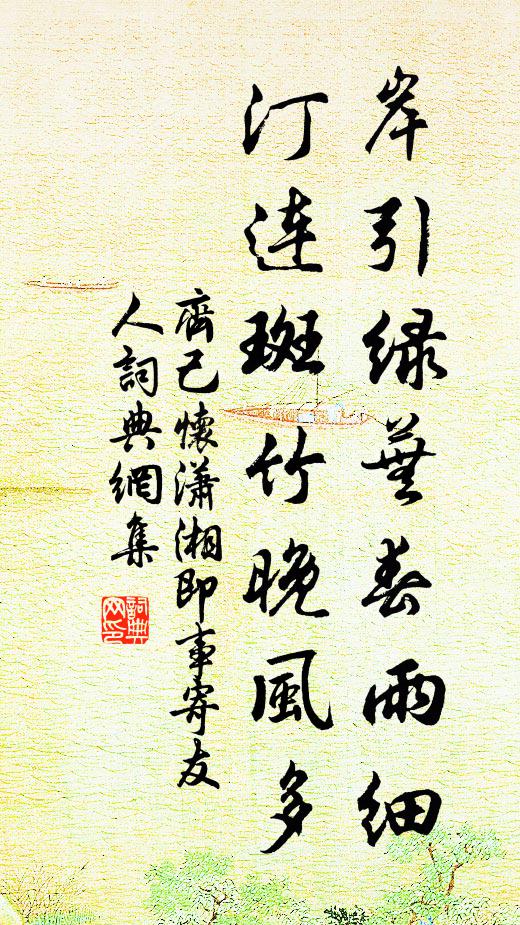 岸引綠蕪春雨細
汀連斑竹晚風多
齊己懷瀟湘即事寄友
人詞典網集
詞典
网印